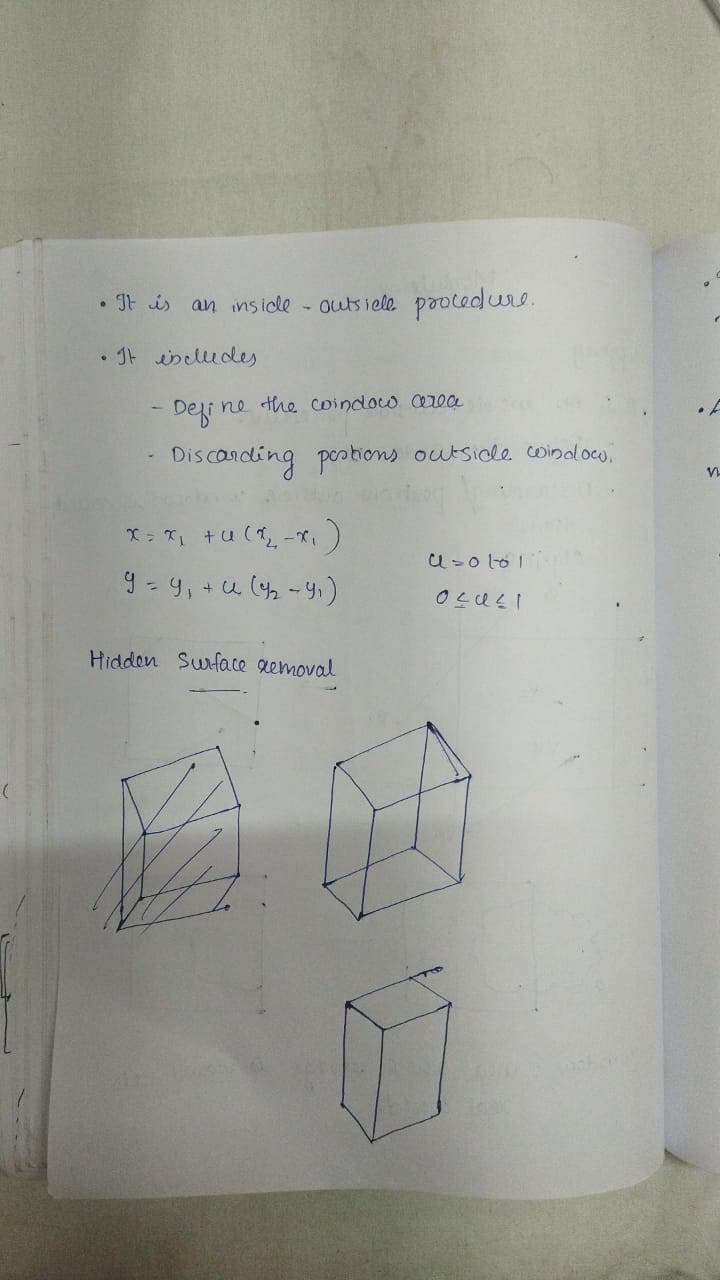 • It is an inside - outside procedure.
• It includes
- Define the window area
- Discarding portions outside window.
x = x₁ + u (x₂ - x₁)
y = y₁ + u (y₂ - y₁)
u = 0 to 1
0 ≤ u ≤ 1
Hidden Surface removal